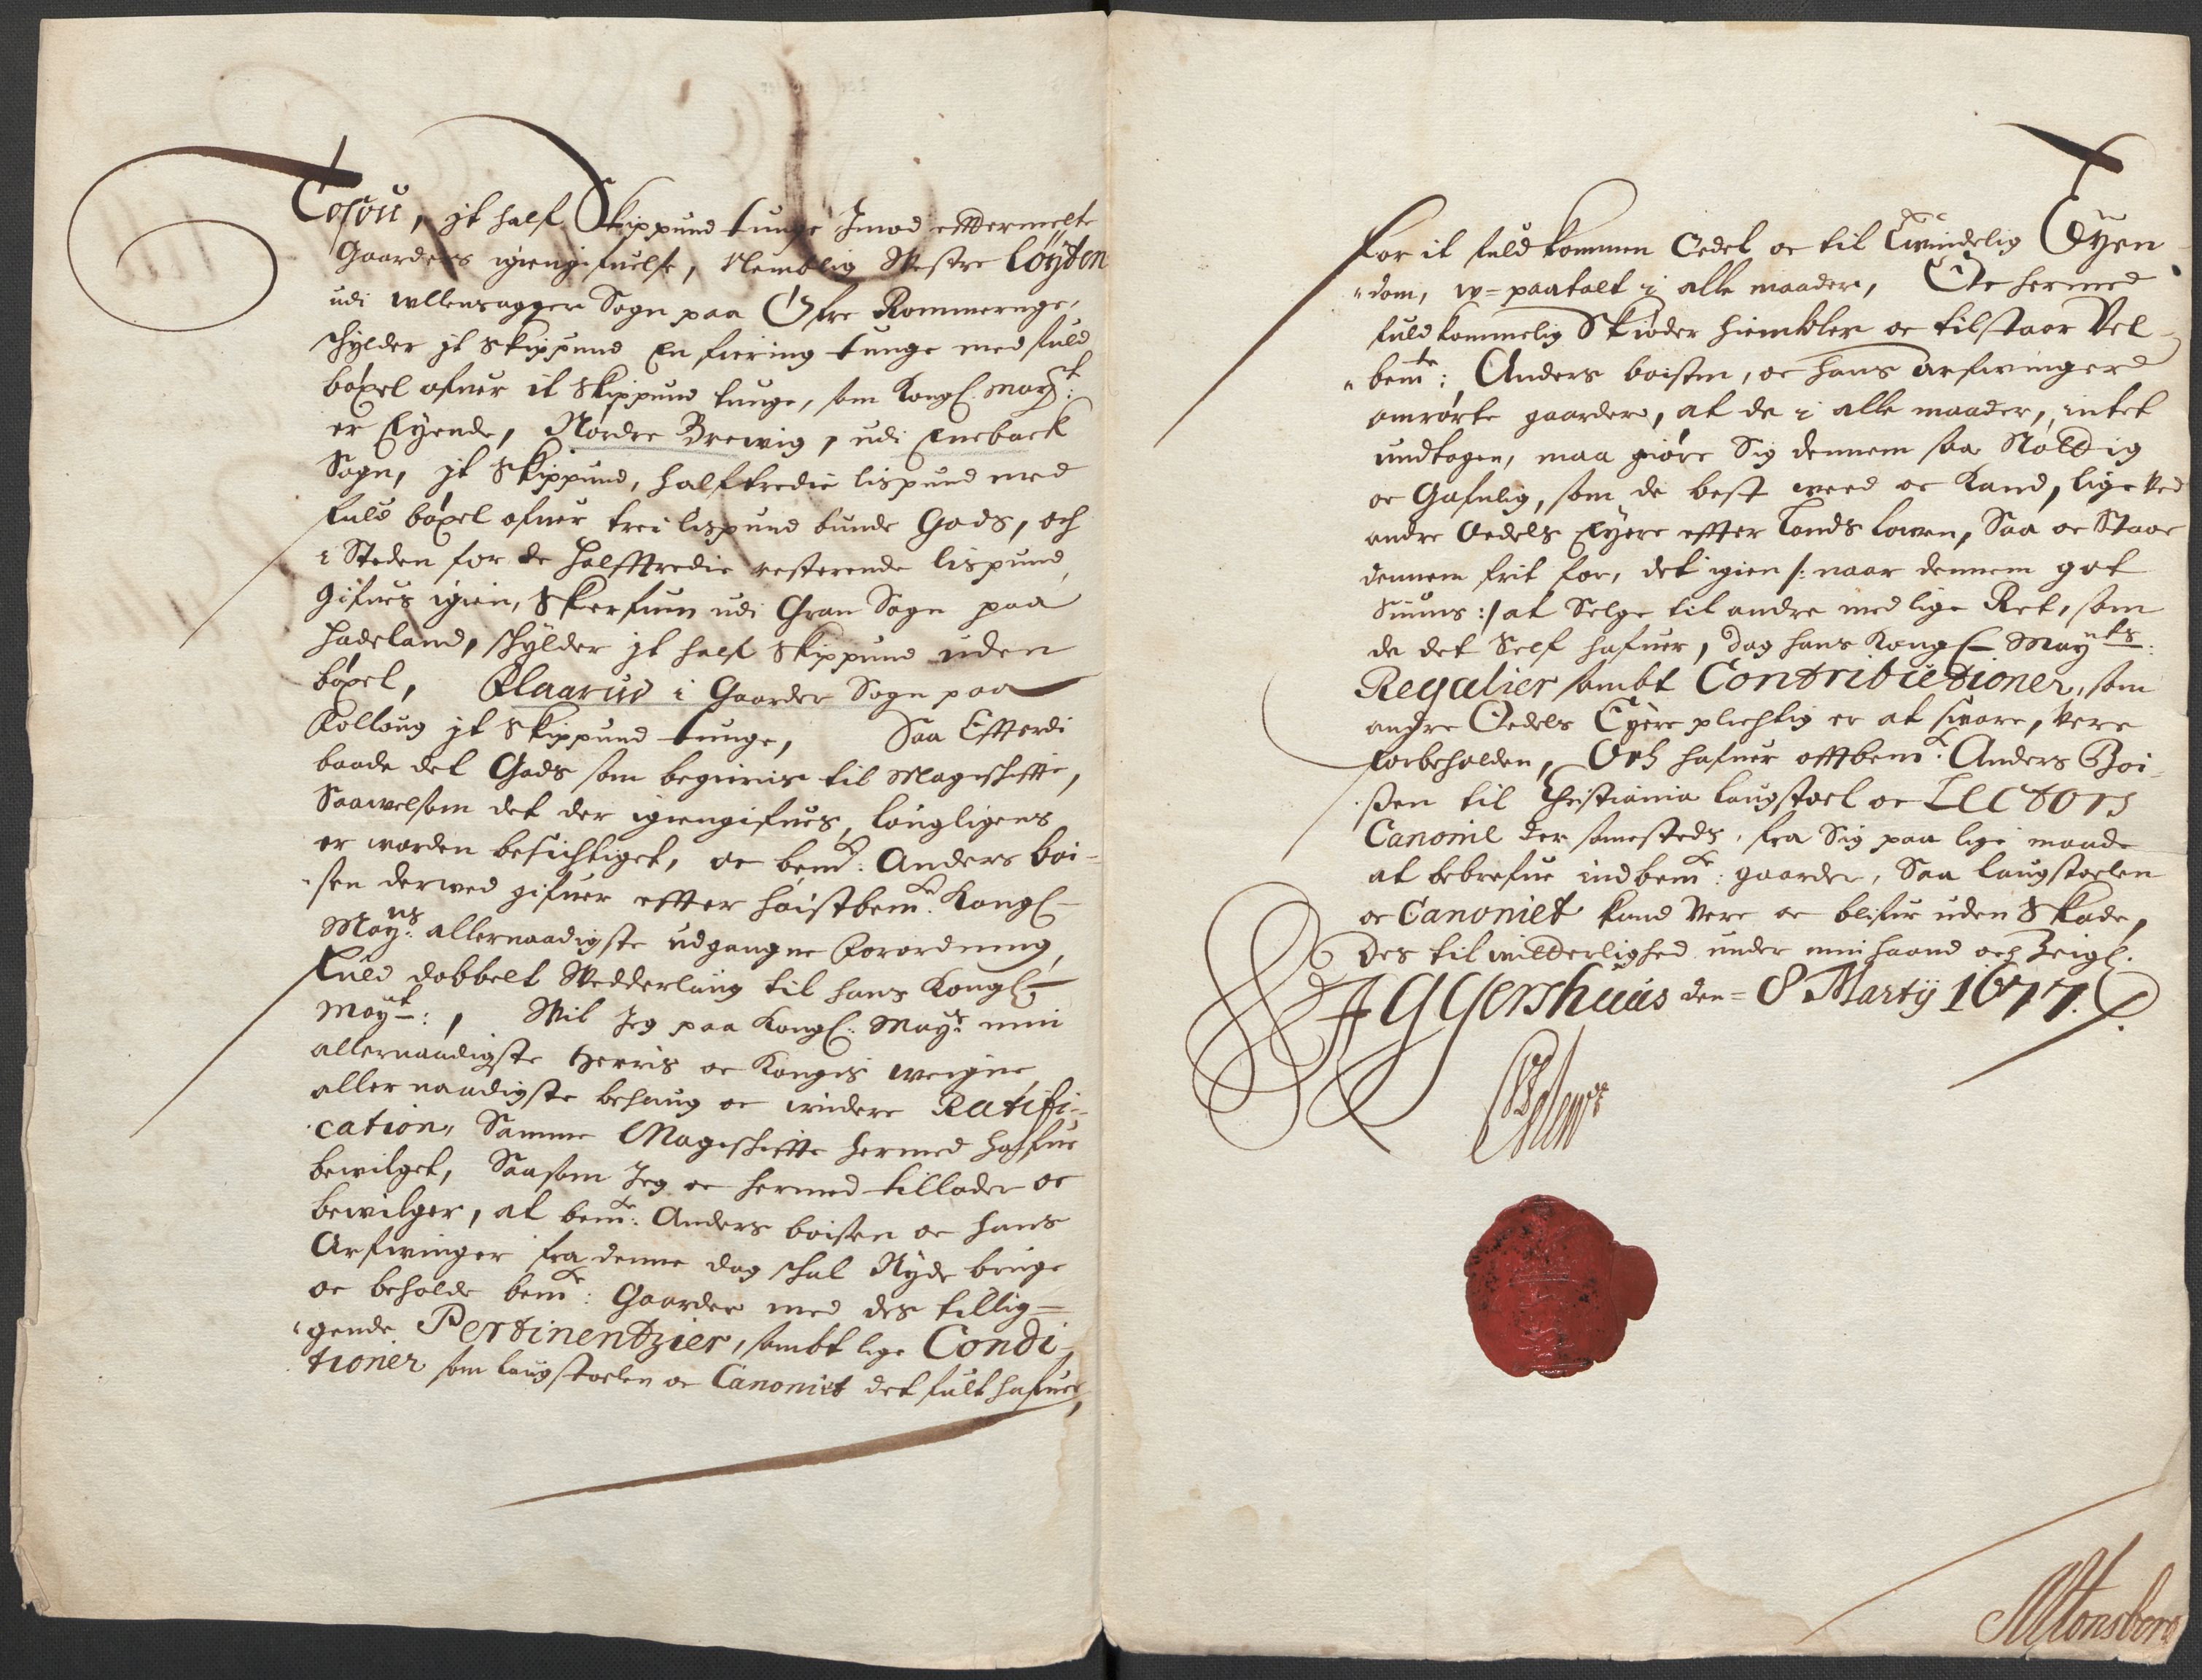 Tosou, jt half Skippund tunge Imod effttermelte
Gaarders igiengifuelse, Nemblig Westre Løyten
udi Ullensagger Sogn paa Øfre Rommerige,
schylder jt Skippund En fiering tunge med fuld
bøxel ofuer it Skippund tunge, som Kongl. May:t
er Eyende, Nordre Brewig, udi Eneback
Sogn, jt Skippund, halftredie lispund med
fuld bøxel ofuer trei lispund bunde Gods, och
i Steden for de halfttredie resterende lispund,
Gifues igien, Skerfuum udi Gran Sogn paa
Hadeland, schylder jt half Skippund uden
bøxel, Elaarud i Gaarder Sogn paa
Følloug jt Skippund tunge, Saa Efftterdi
baade det Gods som begieris til Mageschifftte,
Saawelsom det der igiengifues, lougligens
er worden besichtiget, oc bem:te Anders boi-
sen derwed gifuer effter høistbem:te Kongl
May:ts allernaadigste udgangne Forordning,
fuld dobbelt Wedderlaug til hans Kongl
May:t, Wil Jeg paa Kongl. May:ts min
allernaadigste Herris oc Kongis weigne
allernaadigste behaug oc widere Ratifi-
cation, Samme Mageschiffte hermed hafue
bewilget, Saasom Jeg oc hermed tillader oc
bewilger, at bem:te Anders boisen oc hans
Arfwinger fra denne dag schal Nyde bruge
oc beholde bem:te Gaarder med des tillig-
gende Pertinentzier, sambt lige Condi-
tioner som laugstoelen oc Canoniet det fult hafuer,
for it fuldkommen Oedel oc til Ewindelig Eyen
dom, u-paatalt i alle maader, Oc hermed
fuldkommelig Skiøder hiembler oc tilstaar Vel-
bem:te Anders boisen, oc hans arfwinger
omrørte gaarder, at de i alle maader, intet
undtagen, maa giøre Sig dennem saa Nøttig
oc Gafnlig, som de best weed oc Kand, lige ved
andre Oedels Eyere effter Lands Lowen, Saa oc Staar
dennem frit for, det igien /: naar dennem got
Siunis :/ at Selge til andre med lige Ret, som
de det Self hafuer, dog hans Kongl May:ts
Regalier sambt Contributioner, som
andre Oedels Eyere plichtig er at suare, vere
forbeholden, Och hafuer offtbem:te Anders Boi-
sen til Christiania laugstoel oc Lectors
Canonie der samesteds, fra Sig paa lige maade
at bebrefue indbem:te gaarder, Saa laugstoelen
oc Canoniet kand vere oc blifue uden Skade,
Des til witterlighed under min haand och Zeigl.
Aggershuus den 8 Martij 1677.